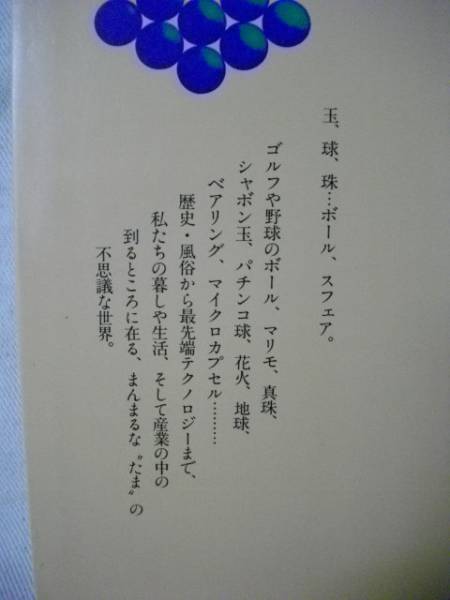 玉、球、珠…ボール、スフェア。
ゴルフや野球のボール、マリモ、真珠、
シャボン玉、パチンコ球、花火、地球、
ベアリング、マイクロカプセル………
歴史・風俗から最先端テクノロジーまで、
私たちの暮しや生活、そして産業の中の
到るところに在る、まんまるな〝たま〟の
不思議な世界。